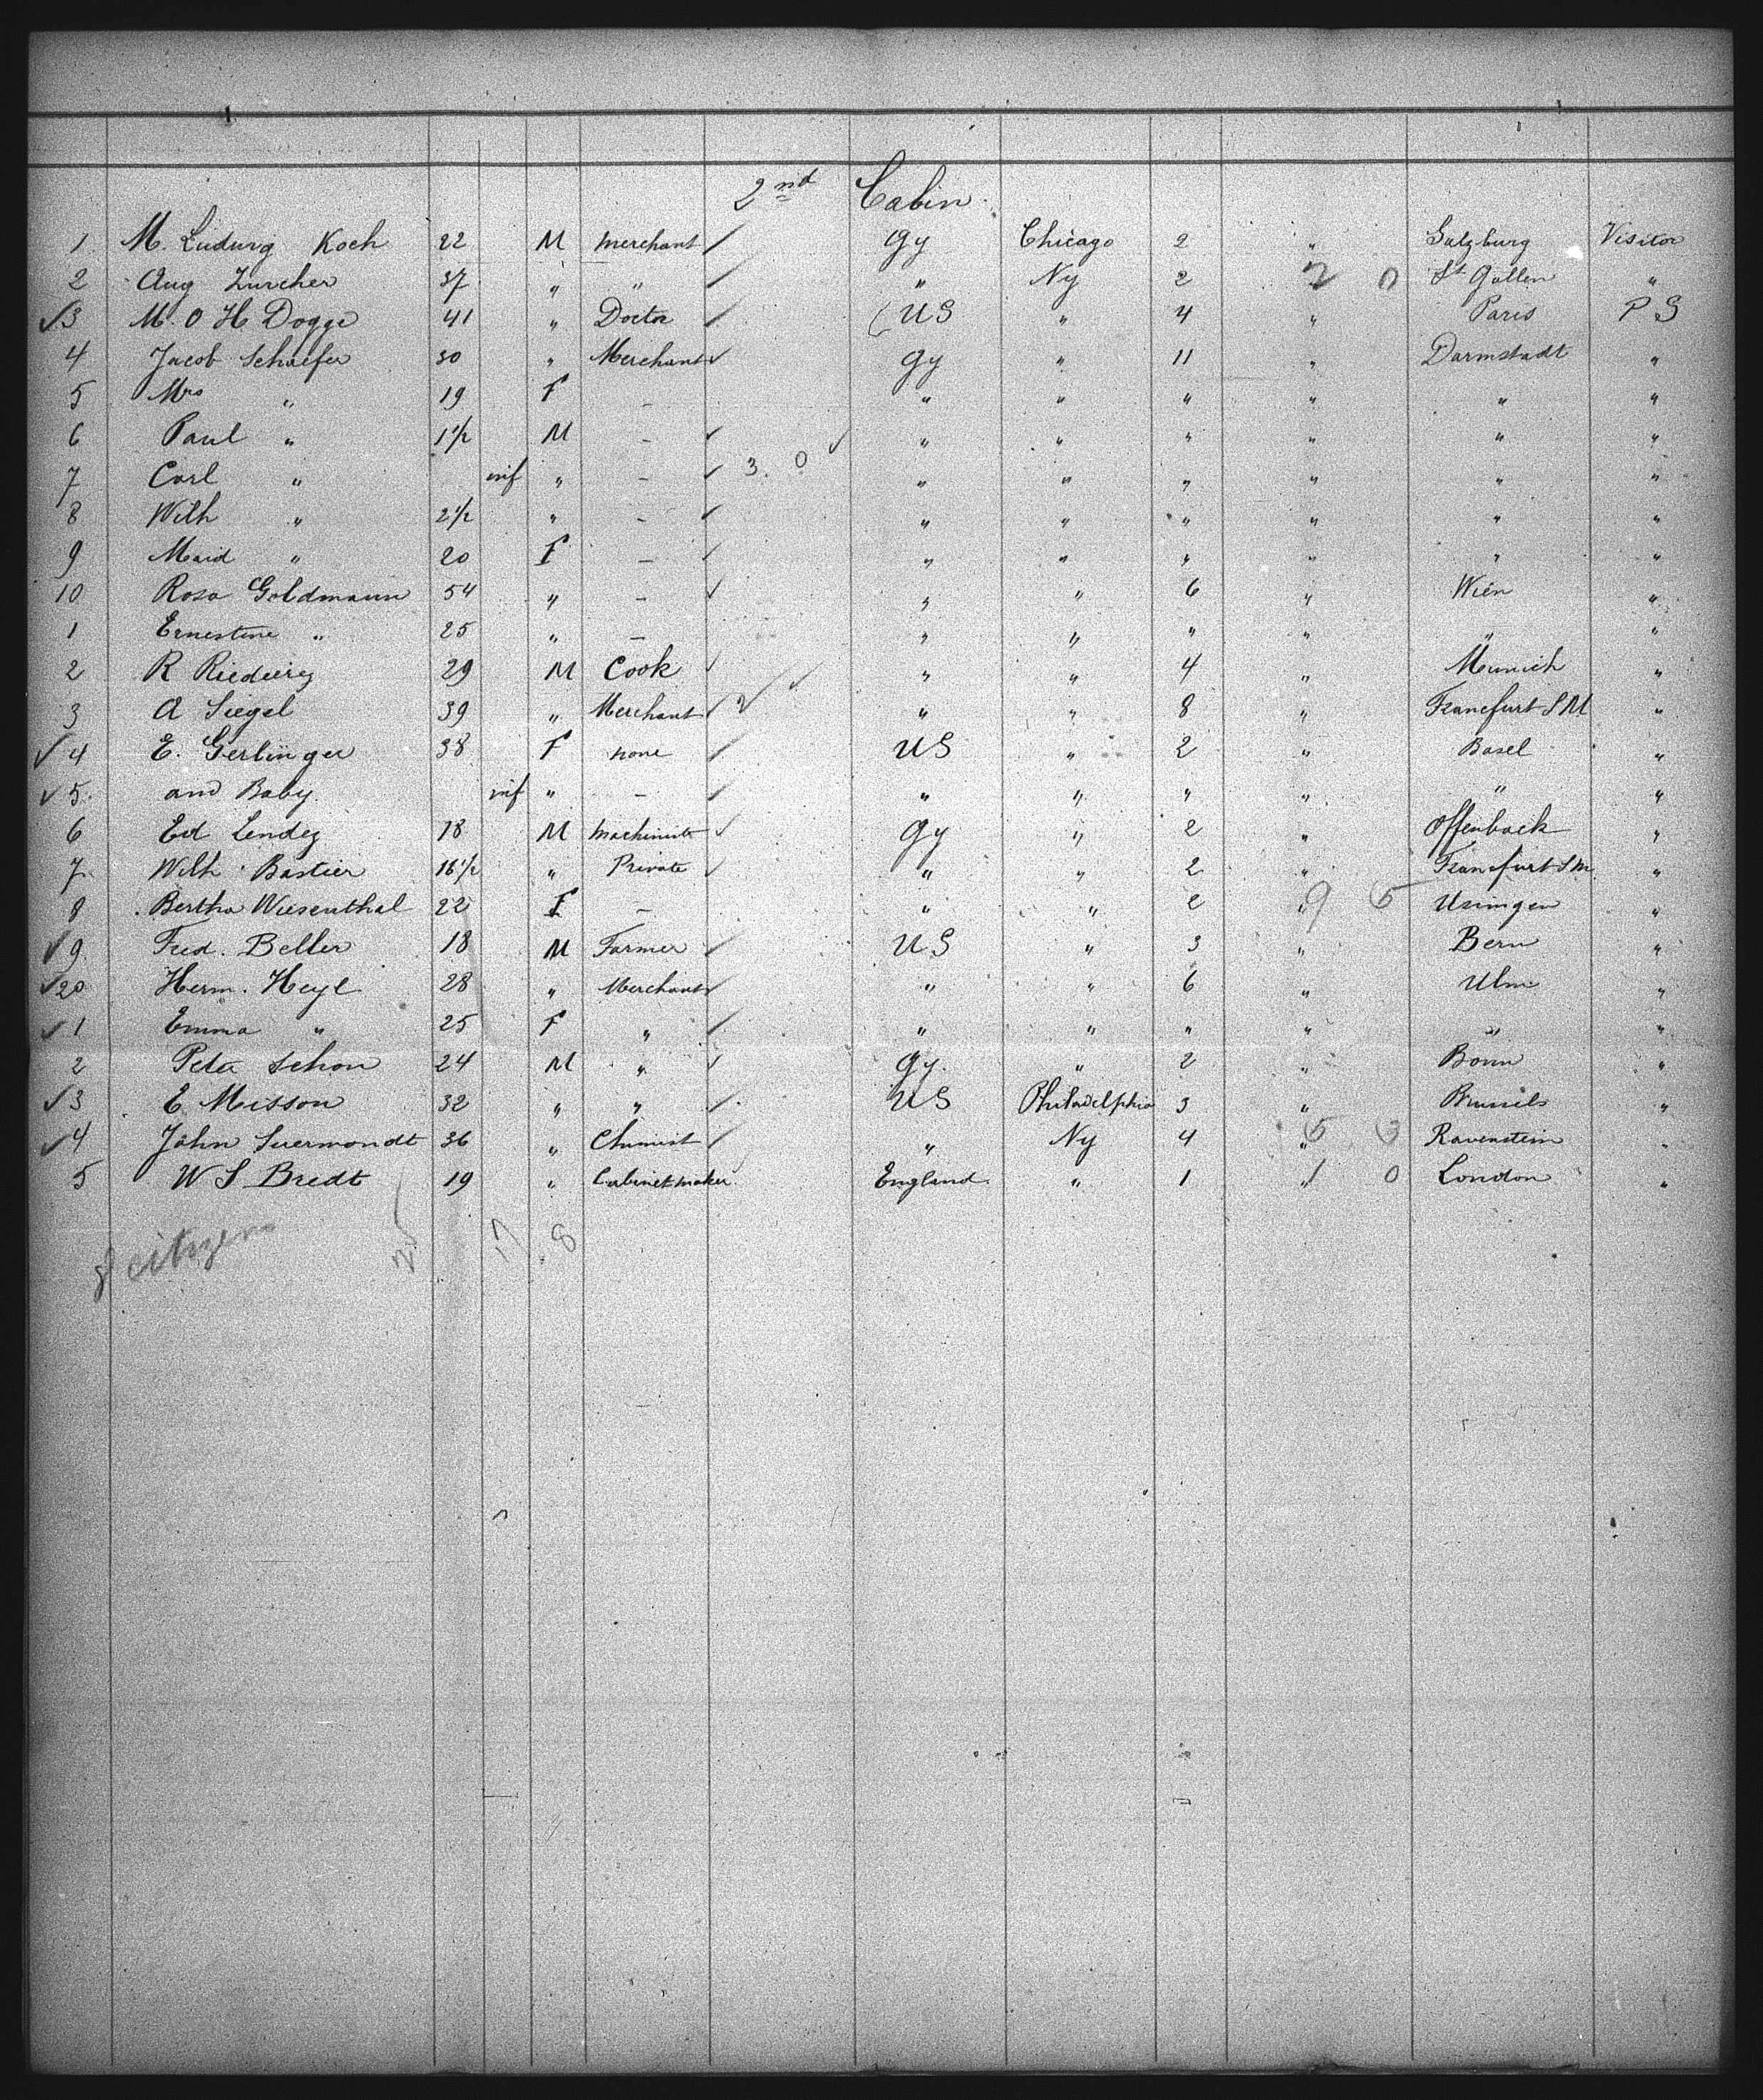 2nd Cabin.
1 M. Ludwig Koch 22 M Merchant Gy Chicago 2 " Salzburg Visitor
2 Aug Zurcher 37 " " " Ny 2 " St Gallen "
3 M. O H Dogge 41 " Doctor US " 4 " Paris P S
4 Jacob Schaefer 30 " Merchant Gy " 11 " Darmstadt "
5 Mrs " 19 F - " " " " " "
6 Paul " 1 1/2 M - " " " " " "
7 Carl " inf " - 3. 0 " " " " " "
8 Wilh " 2 1/2 " - " " " " " "
9 Maid " 20 F - " " " " " "
10 Rosa Goldmann 54 " - " " 6 " Wien "
1 Ernestine " 25 " - " " " " " "
2 R 29 M Cook " " 4 " Munich "
3 A Siegel 39 " Merchant " " 8 " Francfurt S M "
4 E. Gerlinger 38 F none US " 2 " Basel "
5 and Baby inf " - " " " " " "
6 Ed 18 M Machinist Gy " 2 " Offenback "
7 Wilh Bastier 16 1/2 " Private " " 2 " Francfurt S M "
8 Bertha Wiesenthal 22 F - " " 2 " 9 5 Usingen "
9 Fred. Beller 18 M Farmer US " 3 " Bern "
20 Herm. Heyl 28 " Merchant " " 6 " Ulm "
1 Emma " 25 F " " " " " " "
2 Peter Schon 24 M " Gy. " 2 " Bonn "
3 E Misson 32 " " US Philadelphia 3 " Brussels "
4 John Suermondt 36 " Chemist " Ny 4 " 5 3 Ravenstein "
5 W S Bredt 19 " Cabinetmaker England " 1 " 1 0 London "
8 citizens 17 8